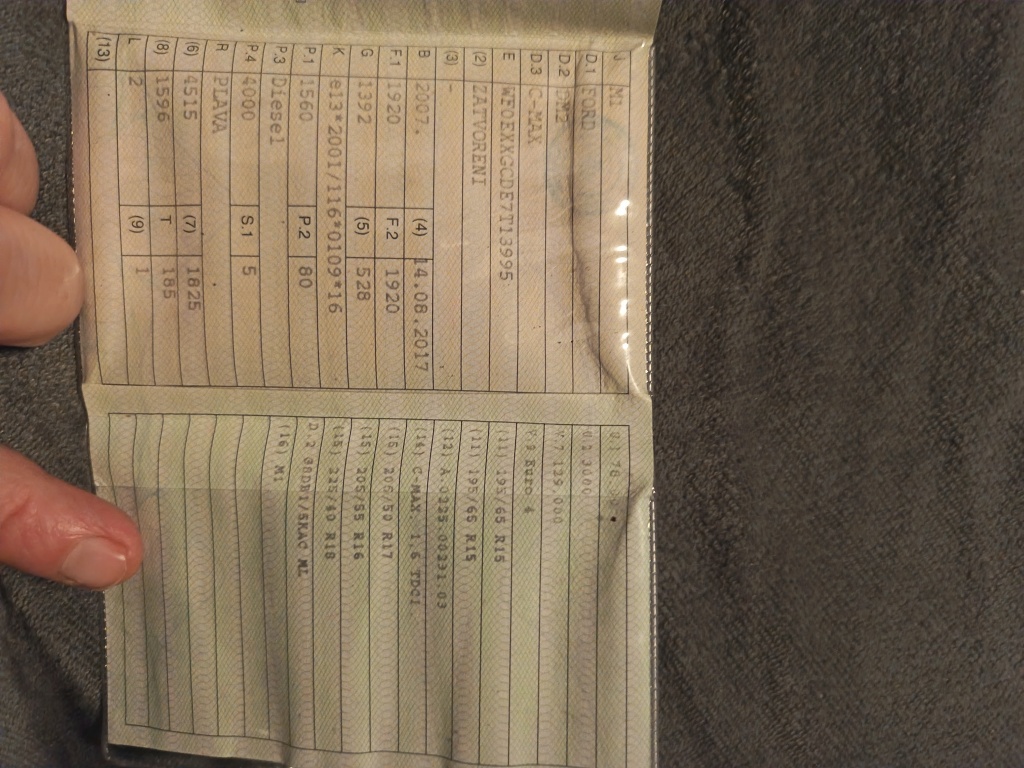 J M1
D.1 FORD
D.2
D.3 C-MAX
E WF0EXXGCDE7T13995
(2) ZATVORENI
(3) -
B 2007. (4) 14.08.2017
F.1 1920 F.2 1920
G 1392 (5) 528
K e13*2001/116*0109*16
P.1 1560 P.2 80
P.3 Diesel
P.4 4000 S.1 5
R PLAVA
(6) 4515 (7) 1825
(8) 1596 T 185
L 2 (9) 1
(13)
U1 76
U2 3000
V7 129.000
V9 Euro 4
(11) 195/65 R15
(11) 195/65 R15
(12)
(14) C-MAX 1.6 TDCI
(15) 205/50 R17
(15) 205/55 R16
(15) 225/40 R18
D.2
(16) M1